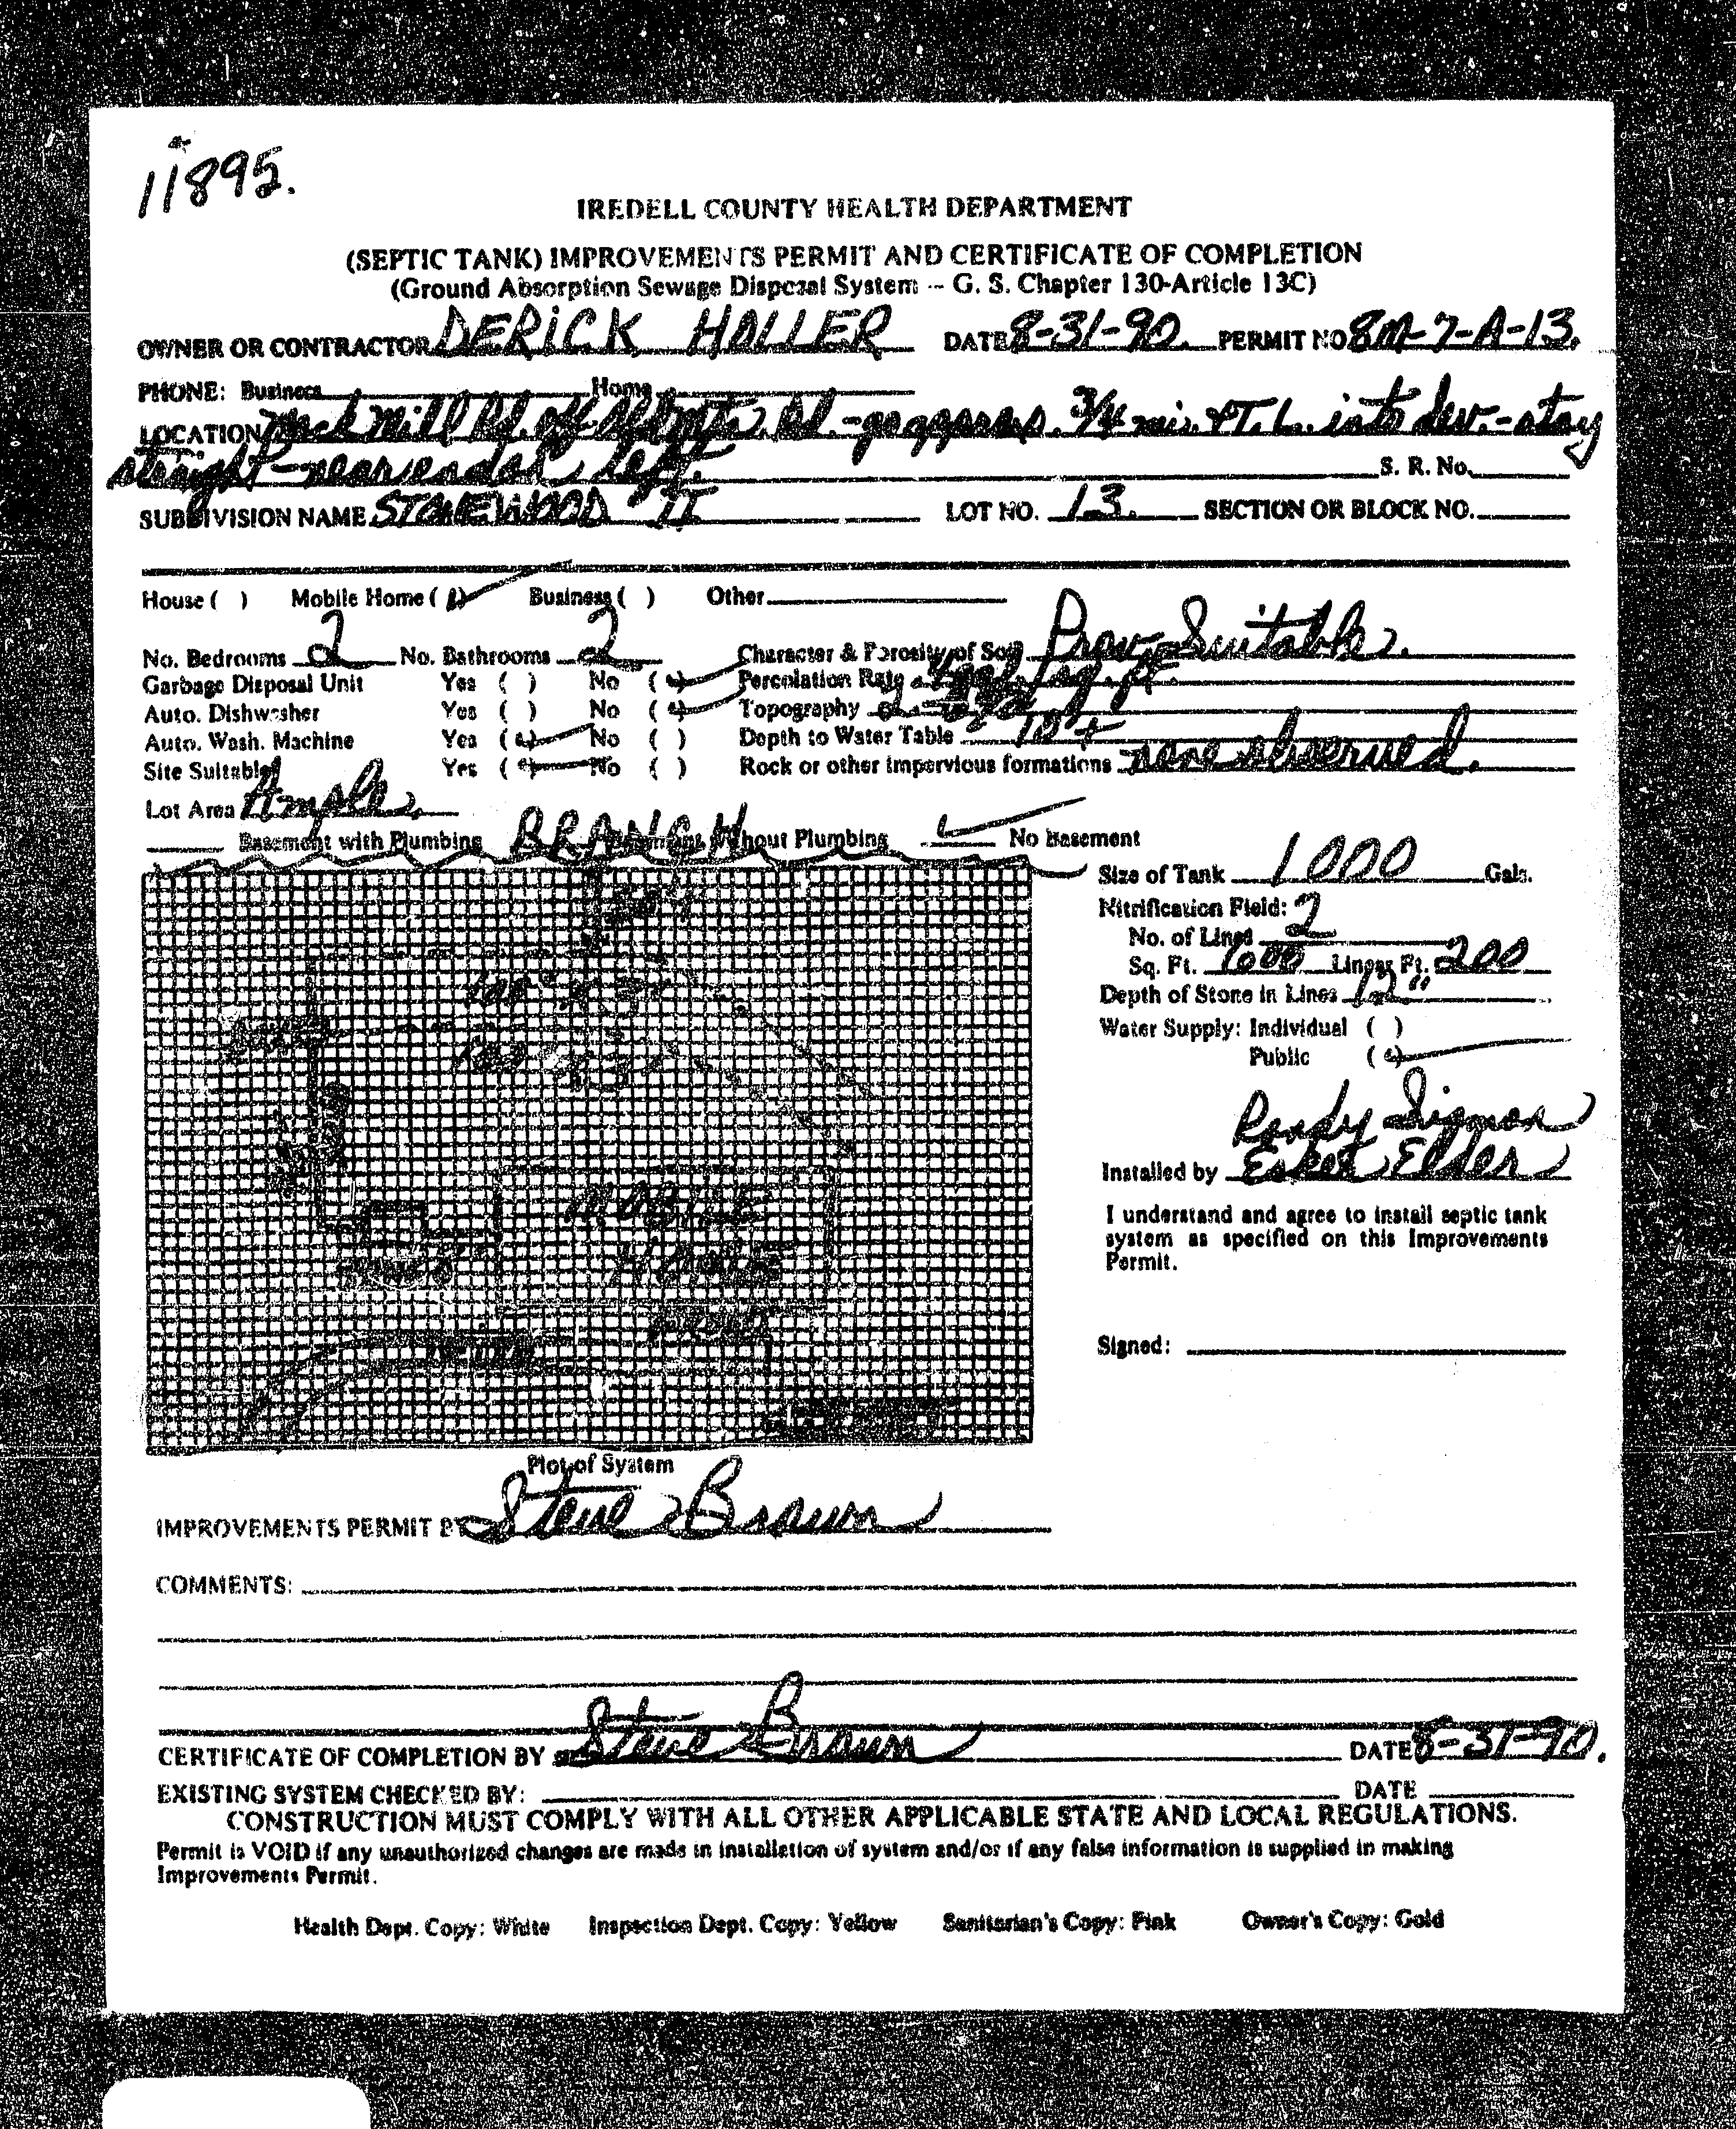 11895.
IREDELL COUNTY HEALTH DEPARTMENT
(SEPTIC TANK) IMPROVEMENTS PERMIT AND CERTIFICATE OF COMPLETION
(Ground Absorption Sewage Disposal System -- G. S. Chapter 130-Article 13C)
OWNER OR CONTRACTOR DERICK HOLLER DATE 8-31-90. PERMIT NO 8M-7-A-13.
PHONE: Business Home
LOCATION Mill Rd. off Rd. - go approx. 3/4 mi. & T. L. into dev. - stay
straight - near end on left. S. R. No.
SUBDIVISION NAME STONEWOOD II LOT NO. 13. SECTION OR BLOCK NO.
House ( ) Mobile Home (✓) Business ( ) Other
No. Bedrooms 2 No. Bathrooms 2 Character & Porosity of Soil Prov. Suitable.
Garbage Disposal Unit Yes ( ) No (✓) Percolation Rate sq. ft.
Auto. Dishwasher Yes ( ) No (✓) Topography
Auto. Wash. Machine Yes (✓) No ( ) Depth to Water Table
Site Suitable Yes (✓) No ( ) Rock or other impervious formations none observed.
Lot Area Ample
Basement with Plumbing BRANCH Basement Without Plumbing ✓ No Basement
Size of Tank 1000 Gals.
Nitrification Field:
No. of Lines 2
Sq. Ft. 600 Linear Ft. 200
Depth of Stone in Lines 12"
Water Supply: Individual ( )
Public (✓)
MOBILE
HOME
Plot of System
Randy Sigmon
Installed by Esket Elder
I understand and agree to install septic tank
system as specified on this Improvements
Permit.
Signed:
IMPROVEMENTS PERMIT BY Steve Braun
COMMENTS:
CERTIFICATE OF COMPLETION BY Steve Braun DATE 8-31-90.
EXISTING SYSTEM CHECKED BY: DATE
CONSTRUCTION MUST COMPLY WITH ALL OTHER APPLICABLE STATE AND LOCAL REGULATIONS.
Permit is VOID if any unauthorized changes are made in installation of system and/or if any false information is supplied in making
Improvements Permit.
Health Dept. Copy: White Inspection Dept. Copy: Yellow Sanitarian's Copy: Pink Owner's Copy: Gold